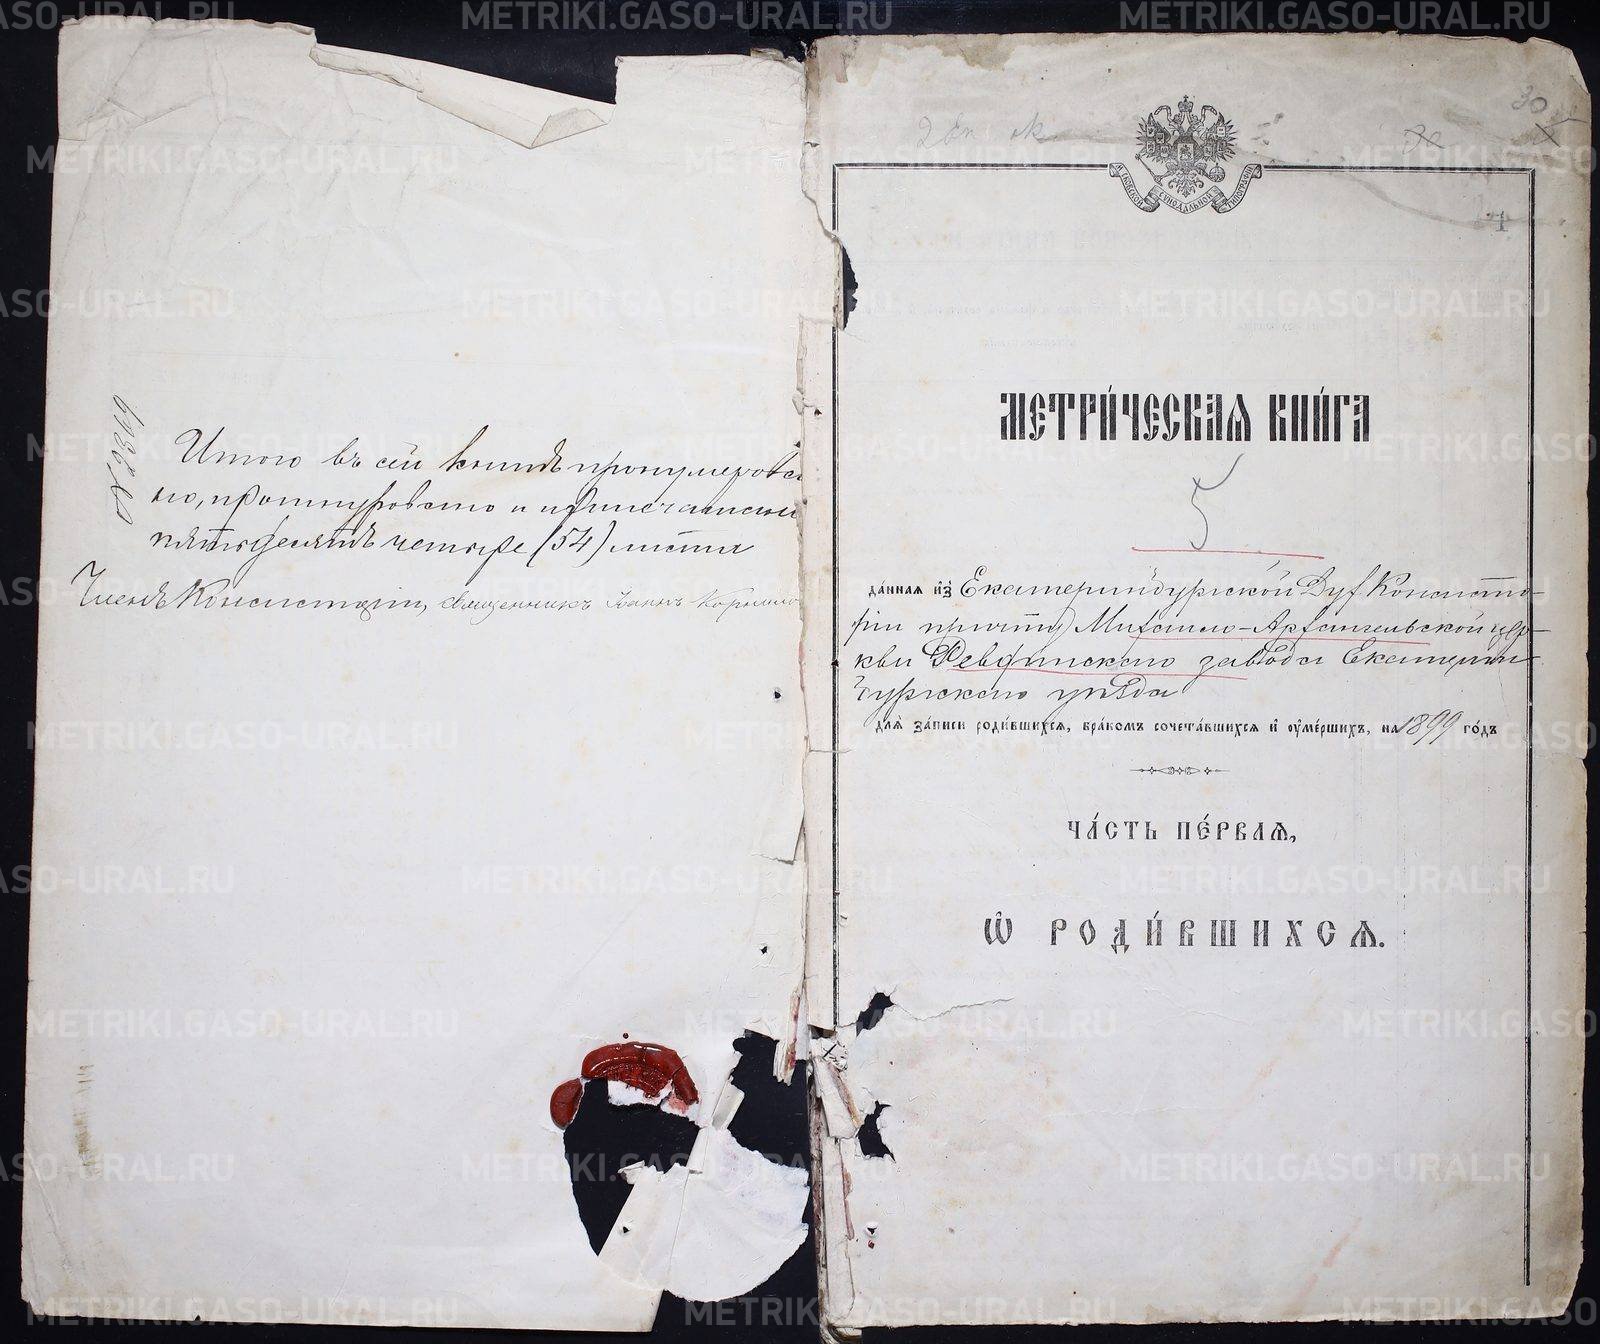 № 9369
Итого въ сей книгѣ пронумерова
но, прошнуровано и припечатано
пятьдесятъ четыре (54) листа
Членъ Консисторіи, священникъ Іоаннъ
30
СѴНОДАЛЬНОЙ ТИПОГРАФІИ
1
МЕТРИ́ЧЕСКАѦ КНИ́ГА
5
да́нная и҆з̾ Екатеринбургской Дух. Консисто-
ріи причту Михаило-Архангельской цер-
кви Ревдинскаго завода Екатерин-
бургскаго уѣзда
для̀ за́писи роди́вшихсѧ, бра́комъ сочета́вшихсѧ и҆ оу҆ме́ршихъ, на 1899 го́дъ
ЧА́СТЬ ПЕ́РВАѦ,
Ѽ РОДИ́ВШИХСѦ.
METRIKI.GASO-URAL.RU